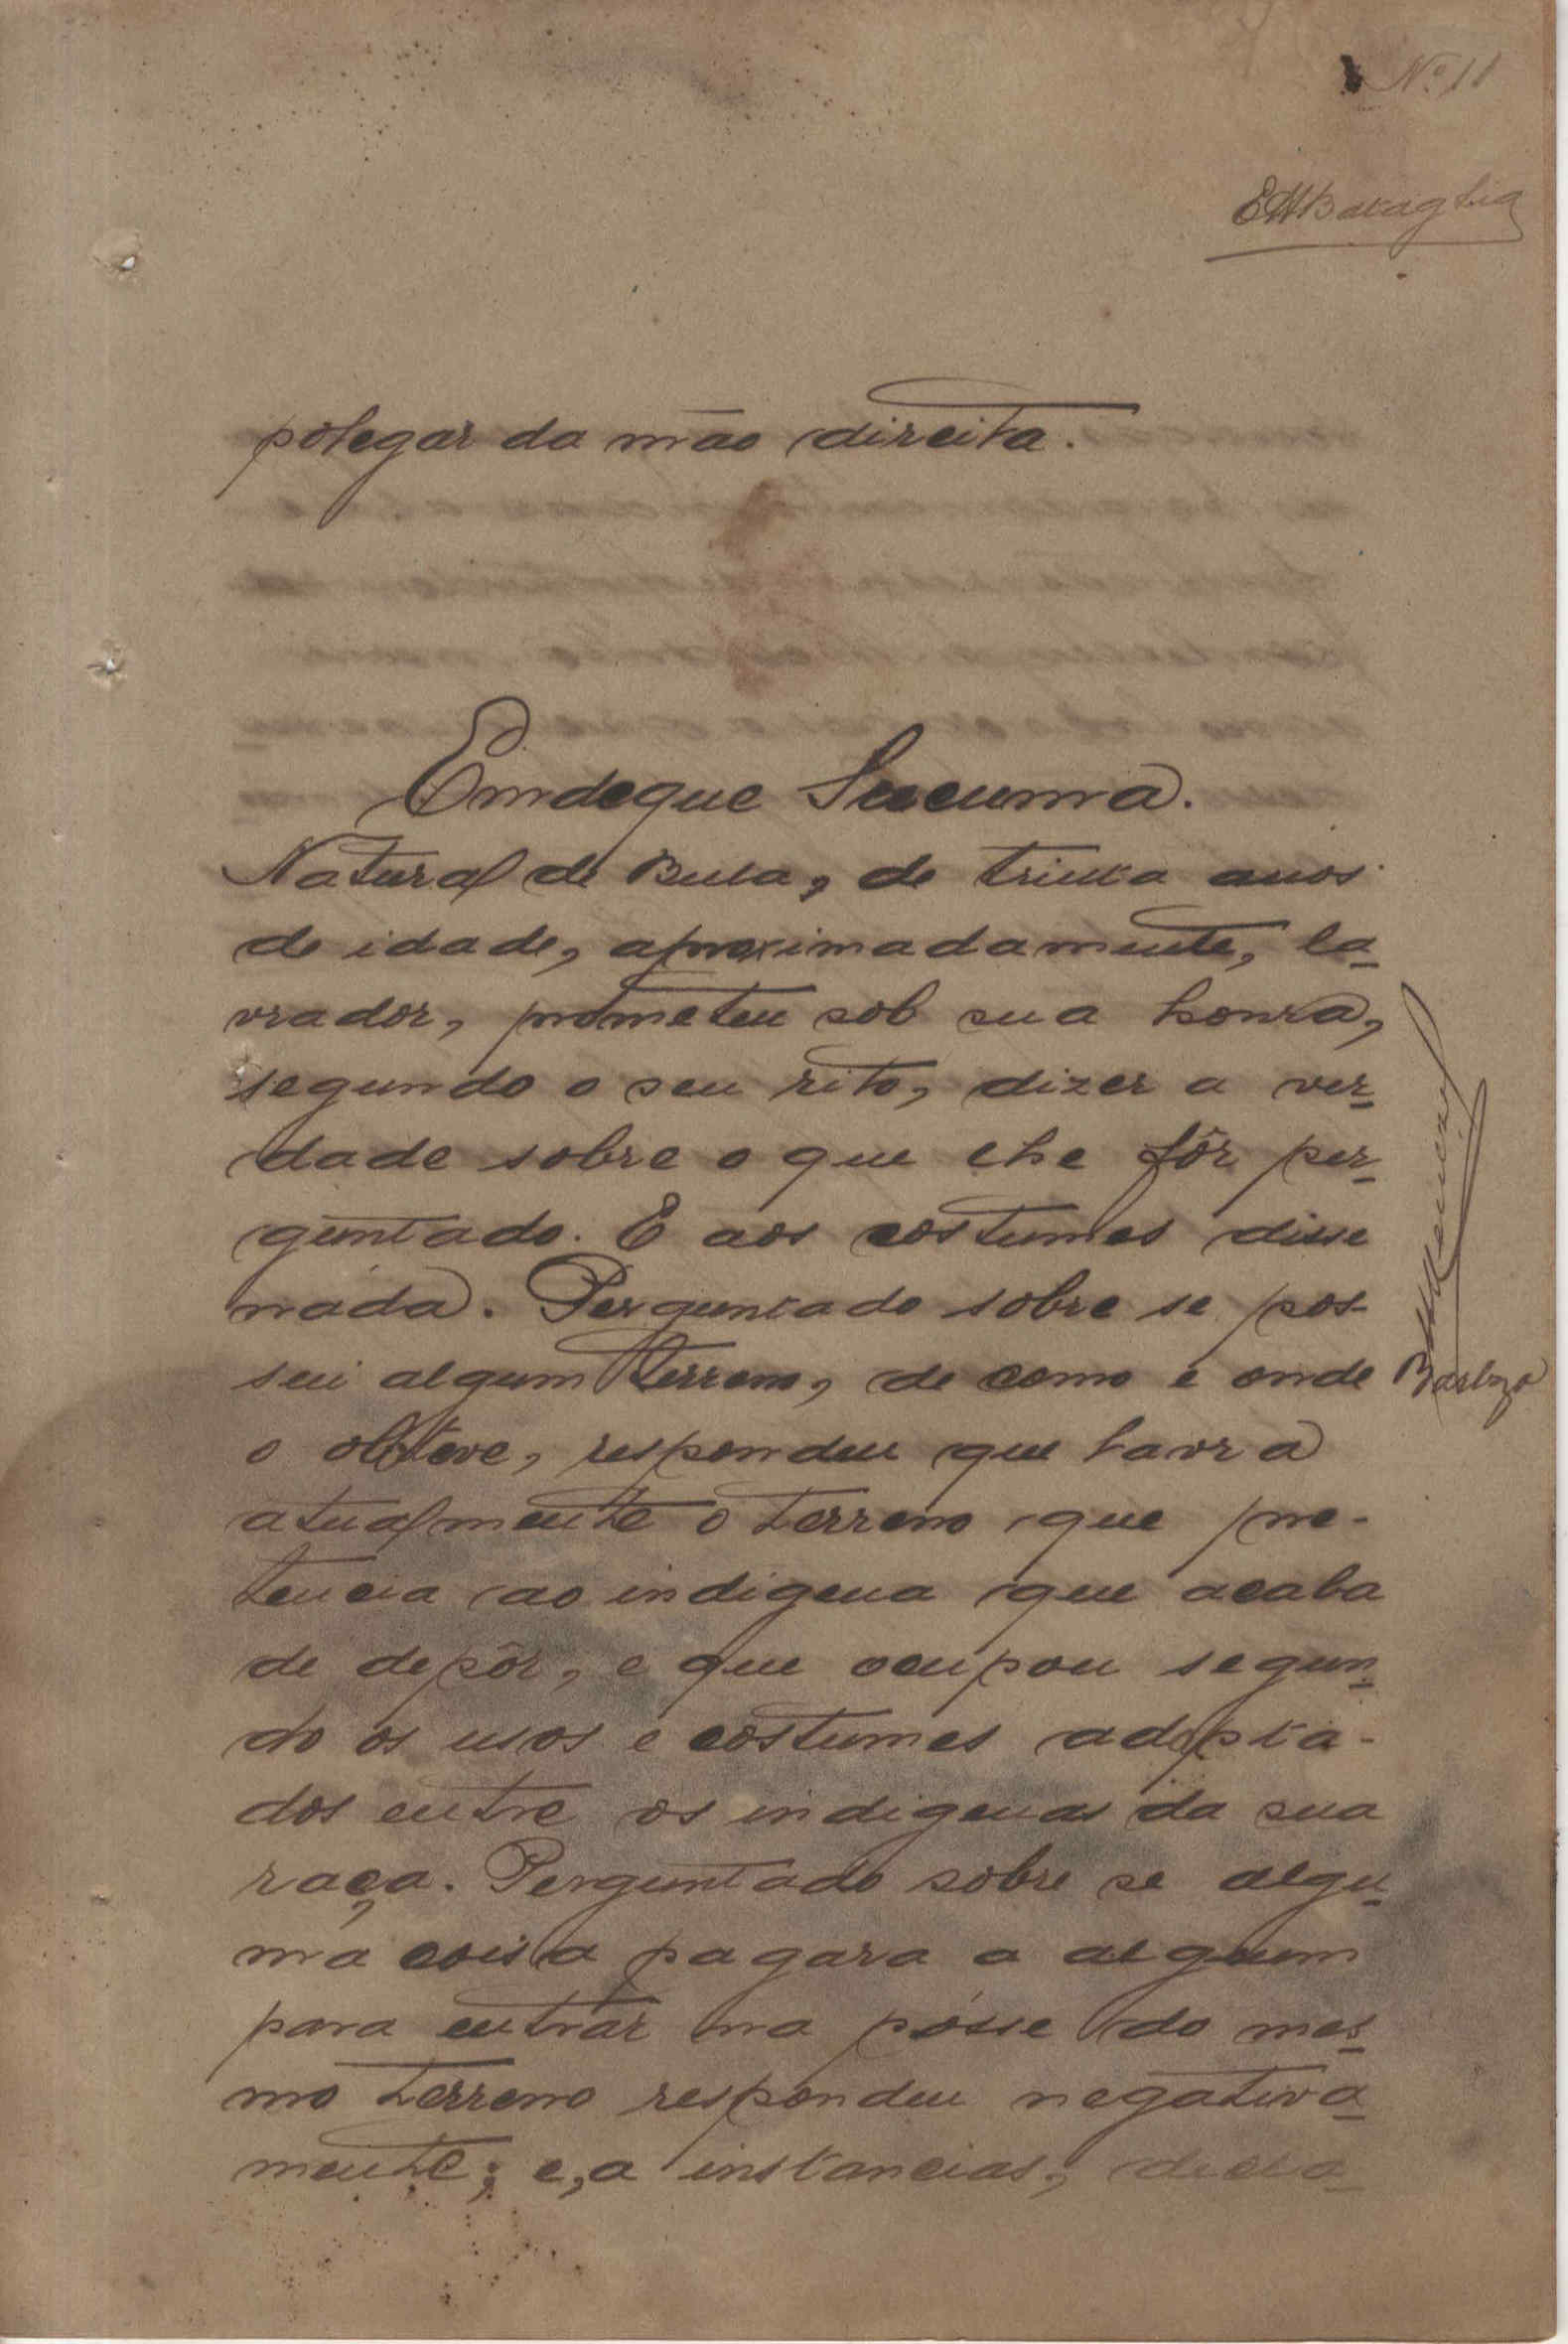 Nº 11
polegar da mão direita.
Emdeque Sucuma.
Natural de Bula, de trinta anos
de idade, aproximadamente, la-
vrador, prometeu sob sua honra,
segundo o seu rito, dizer a ver-
dade sobre o que lhe fôr per-
guntado. E aos costumes disse
nada. Perguntado sobre se pos-
sui algum terreno, de como e onde
o obteve, respondeu que lavra
atualmente o terreno que pre-
tencia ao indigena que acaba
de depôr, e que ocupou segun-
do os usos e costumes adopta-
dos entre os indigenas da sua
raça. Perguntado sobre se algu-
ma coisa pagara a alguem
para entrar na pósse do mes-
mo terreno respondeu negativa-
mente; e, a instancias, decla-
Barboza